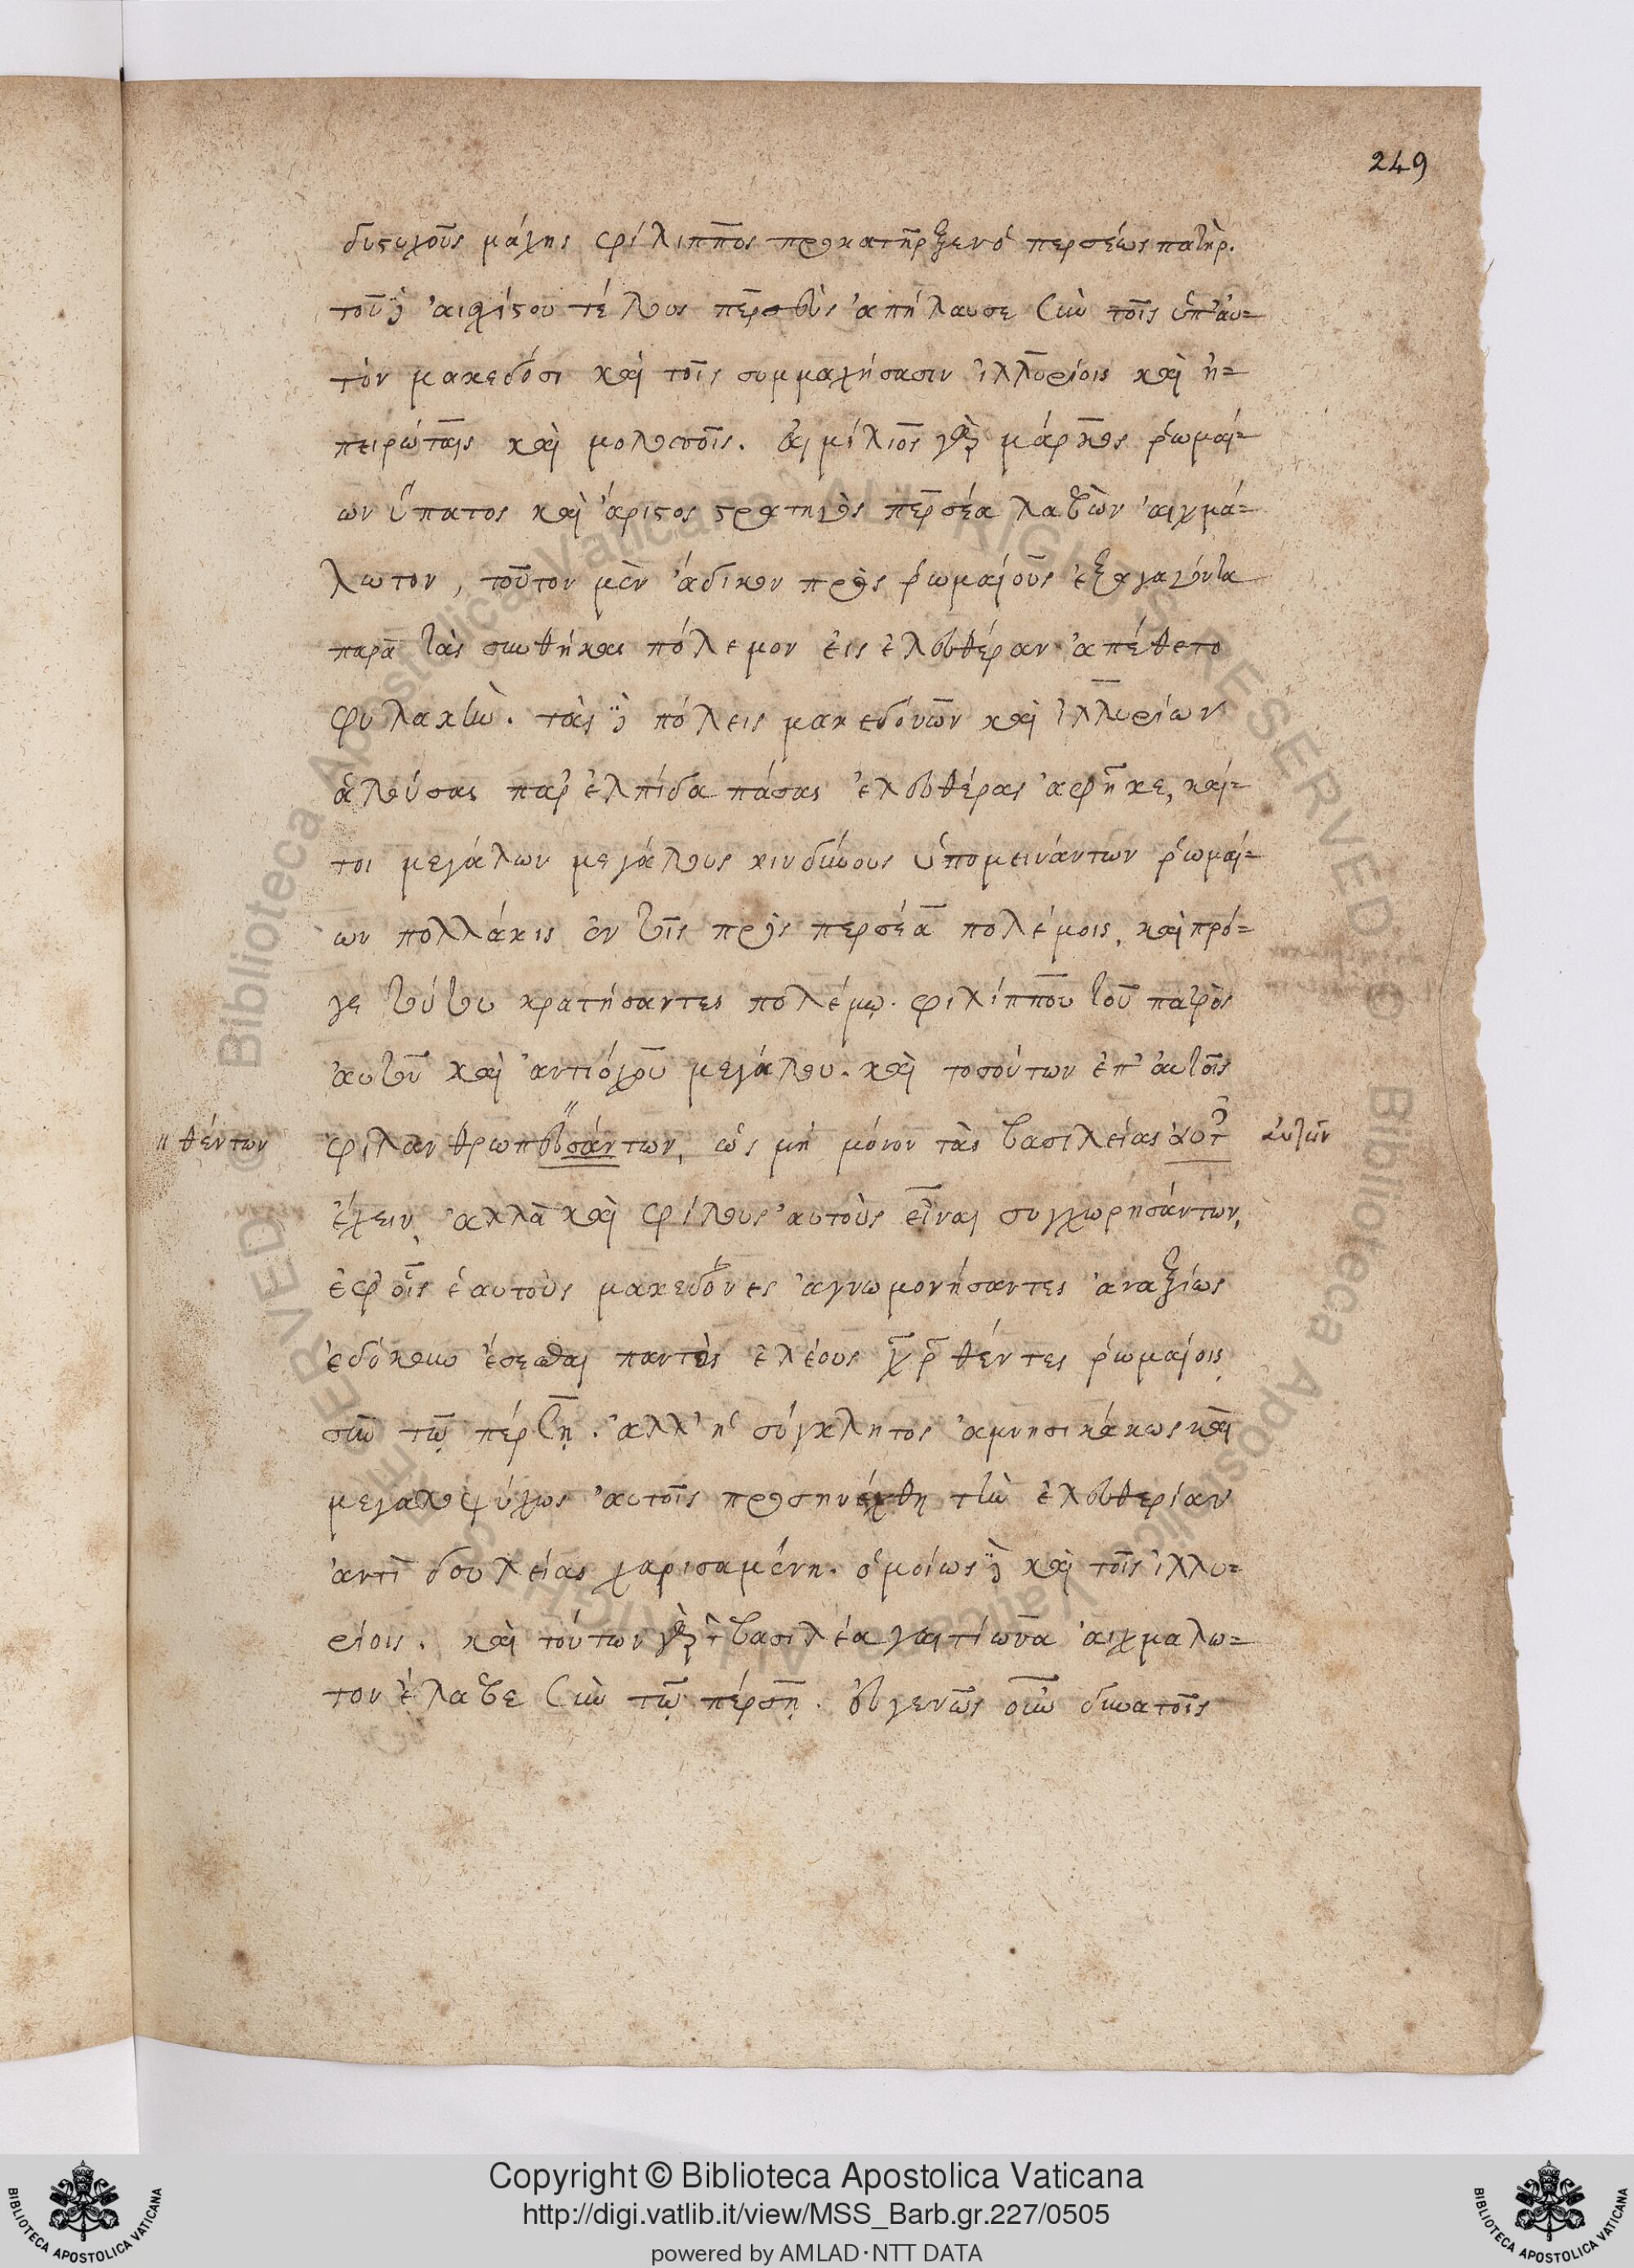 249
δυστυχοῦς μάχης φίλιππος προκατῆρξεν ὁ περσέως πατήρ.
τοῦ δὲ αἰσχίστου τέλους περσεὺς ἀπήλαυσε σὺν τοῖς ὑπ' αὐ=
τὸν μακεδόσι καὶ τοῖς συμμαχήσασιν ἰλλυρίοις καὶ ἠ=
πειρώταις καὶ μολοσσοῖς. αἰμίλιος γὰρ μάρκος ῥωμαί=
ων ὕπατος καὶ ἄριστος στρατηγὸς περσέα λαβὼν αἰχμά=
λωτον, τοῦτον μὲν ἄδικον πρὸς ῥωμαίους ἐξαγαγόντα
παρὰ τὰς συνθήκας πόλεμον εἰς ἐλευθέραν ἀπέθετο
φυλακὴν. τὰς δὲ πόλεις μακεδόνων καὶ ἰλλυρίων
ἁλούσας παρ' ἐλπίδα πάσας ἐλευθέρας ἀφῆκε, καί=
τοι μεγάλων μεγάλους κινδύνους ὑπομεινάντων ῥωμαί=
ων πολλάκις ἐν τοῖς πρὸς περσέα πολέμοις, καὶ πρό=
γε τούτου κρατήσαντες πολέμῳ φιλίππου τοῦ πατρὸς
αὐτοῦ καὶ ἀντιόχου μεγάλου. καὶ τοσούτων ἐπ' αὐτοῖς
" θέντων φιλανθρωπευσάντων, ὡς μὴ μόνον τὰς βασιλείας αὐτ αὐτῶν
ἔχειν, ἀλλὰ καὶ φίλους αὐτοὺς εἶναι συγχωρησάντων,
ἐφ' οἷς ἑαυτοὺς μακεδόνες ἀγνωμονήσαντες ἀναξίως
ἐδόκουν ἔσεσθαι παντὸς ἐλέους χρθέντες ῥωμαίοις
σὺν τῷ πέρσῃ. ἀλλ' ἡ σύγκλητος ἀμνησικάκως καὶ
μεγαλοψύχως αὐτοῖς προσηνέχθη τὴν ἐλευθερίαν
ἀντὶ δουλείας χαρισαμένη. ὁμοίως δὲ καὶ τοῖς ἰλλυ=
ρίοις. καὶ τούτων γὰρ τὸν βασιλέα γαιτίωνα αἰχμαλω=
τον ἔλαβε σὺν τῷ πέρσῃ. εὐγενῶς οὖν δυνατοῖς
Copyright © Biblioteca Apostolica Vaticana
http://digi.vatlib.it/view/MSS_Barb.gr.227/0505
powered by AMLAD·NTT DATA
BIBLIOTECA APOSTOLICA VATICANA
BIBLIOTECA APOSTOLICA VATICANA